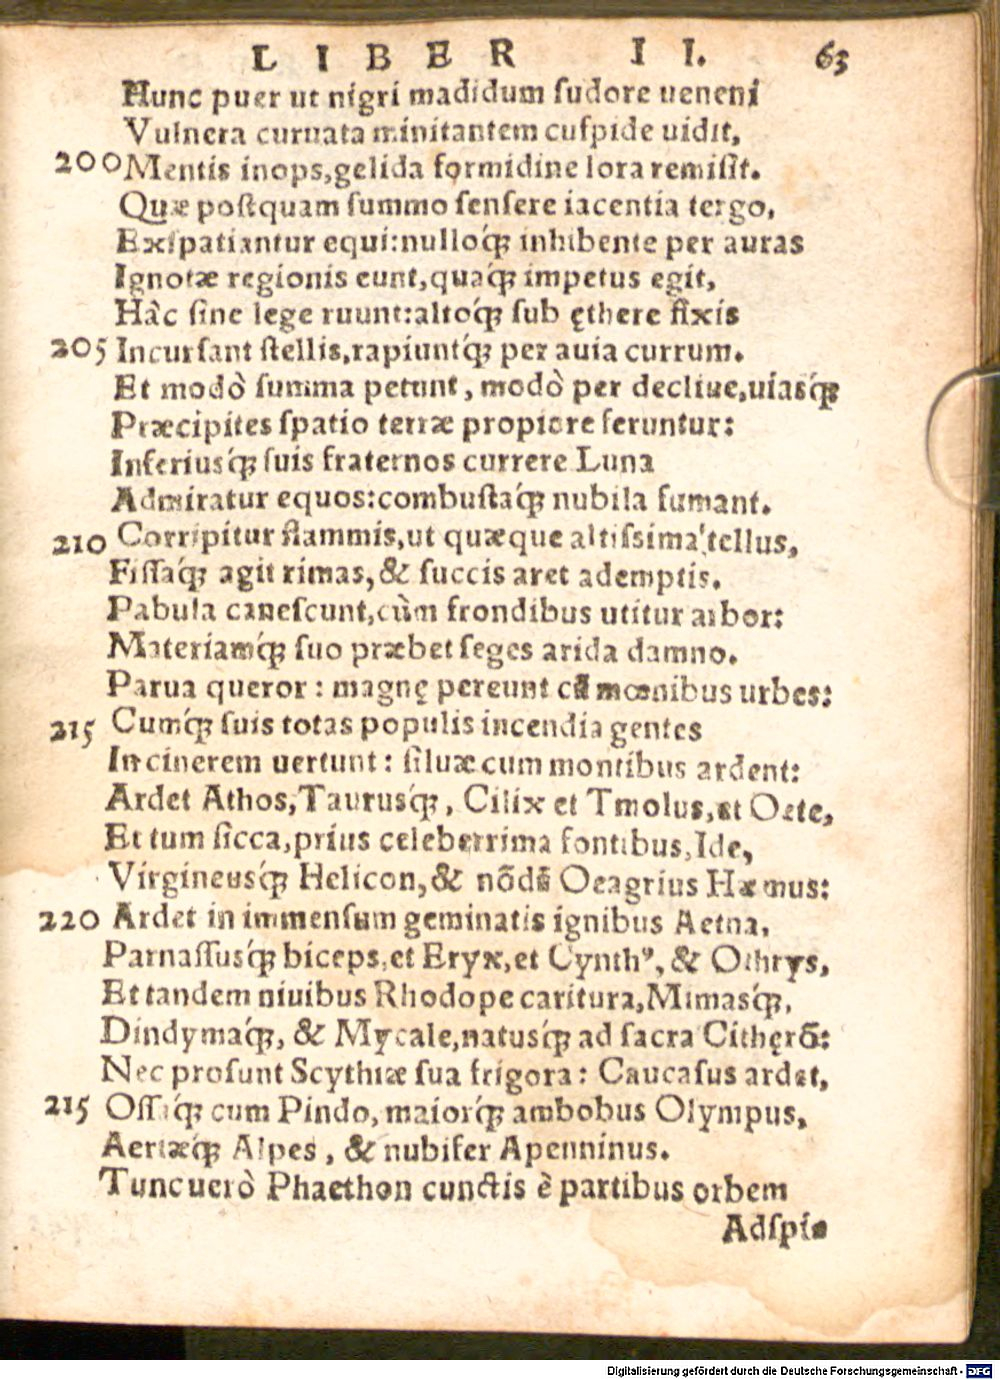 LIBER II. 63
Hunc puer ut nigri madidum ſudore ueneni
Vulnera curuata minitantem cuſpide uidit,
200 Mentis inops, gelida formidine lora remiſit.
Quæ poſtquam ſummo ſenſere iacentia tergo,
Exſpatiantur equi: nulloq́ꝫ inhibente per auras
Ignotæ regionis eunt, quaq́ꝫ impetus egit,
Hâc ſine lege ruunt: altoq́ꝫ ſub ęthere fixis
205 Incurſant ſtellis, rapiuntq́ꝫ per auia currum.
Et modò ſumma petunt, modò per decliue, uiasq́ꝫ
Præcipites ſpatio terræ propiore feruntur:
Inferiusq́ꝫ ſuis fraternos currere Luna
Admiratur equos: combuſtaq́ꝫ nubila fumant.
210 Corripitur flammis, ut quæque altiſsima, tellus,
Fiſſaq́ꝫ agit rimas, & ſuccis aret ademptis.
Pabula caneſcunt, cùm frondibus utitur arbor:
Materiamq́ꝫ ſuo præbet ſeges arida damno.
Parua queror: magnę pereunt cũ mœnibus urbes:
215 Cumq́ꝫ ſuis totas populis incendia gentes
In cinerem uertunt: ſiluæ cum montibus ardent:
Ardet Athos, Taurusq́ꝫ, Cilix et Tmolus, et Oete,
Et tum ſicca, prius celeberrima fontibus, Ide,
Virgineusq́ꝫ Helicon, & nõdũ Oeagrius Hæmus:
220 Ardet in immenſum geminatis ignibus Aetna,
Parnaſſusq́ꝫ biceps, et Eryx, et Cynthꝰ, & Othrys,
Et tandem niuibus Rhodope caritura, Mimasq́ꝫ,
Dindymaq́ꝫ, & Mycale, natusq́ꝫ ad ſacra Cithęrõ:
Nec proſunt Scythiæ ſua frigora: Caucaſus ardet,
215 Oſſaq́ꝫ cum Pindo, maiorq́ꝫ ambobus Olympus,
Aeriæq́ꝫ Alpes, & nubifer Apenninus.
Tunc uerò Phaethon cunctis è partibus orbem
Adſpi-
Digitalisierung gefördert durch die Deutsche Forschungsgemeinschaft - DFG